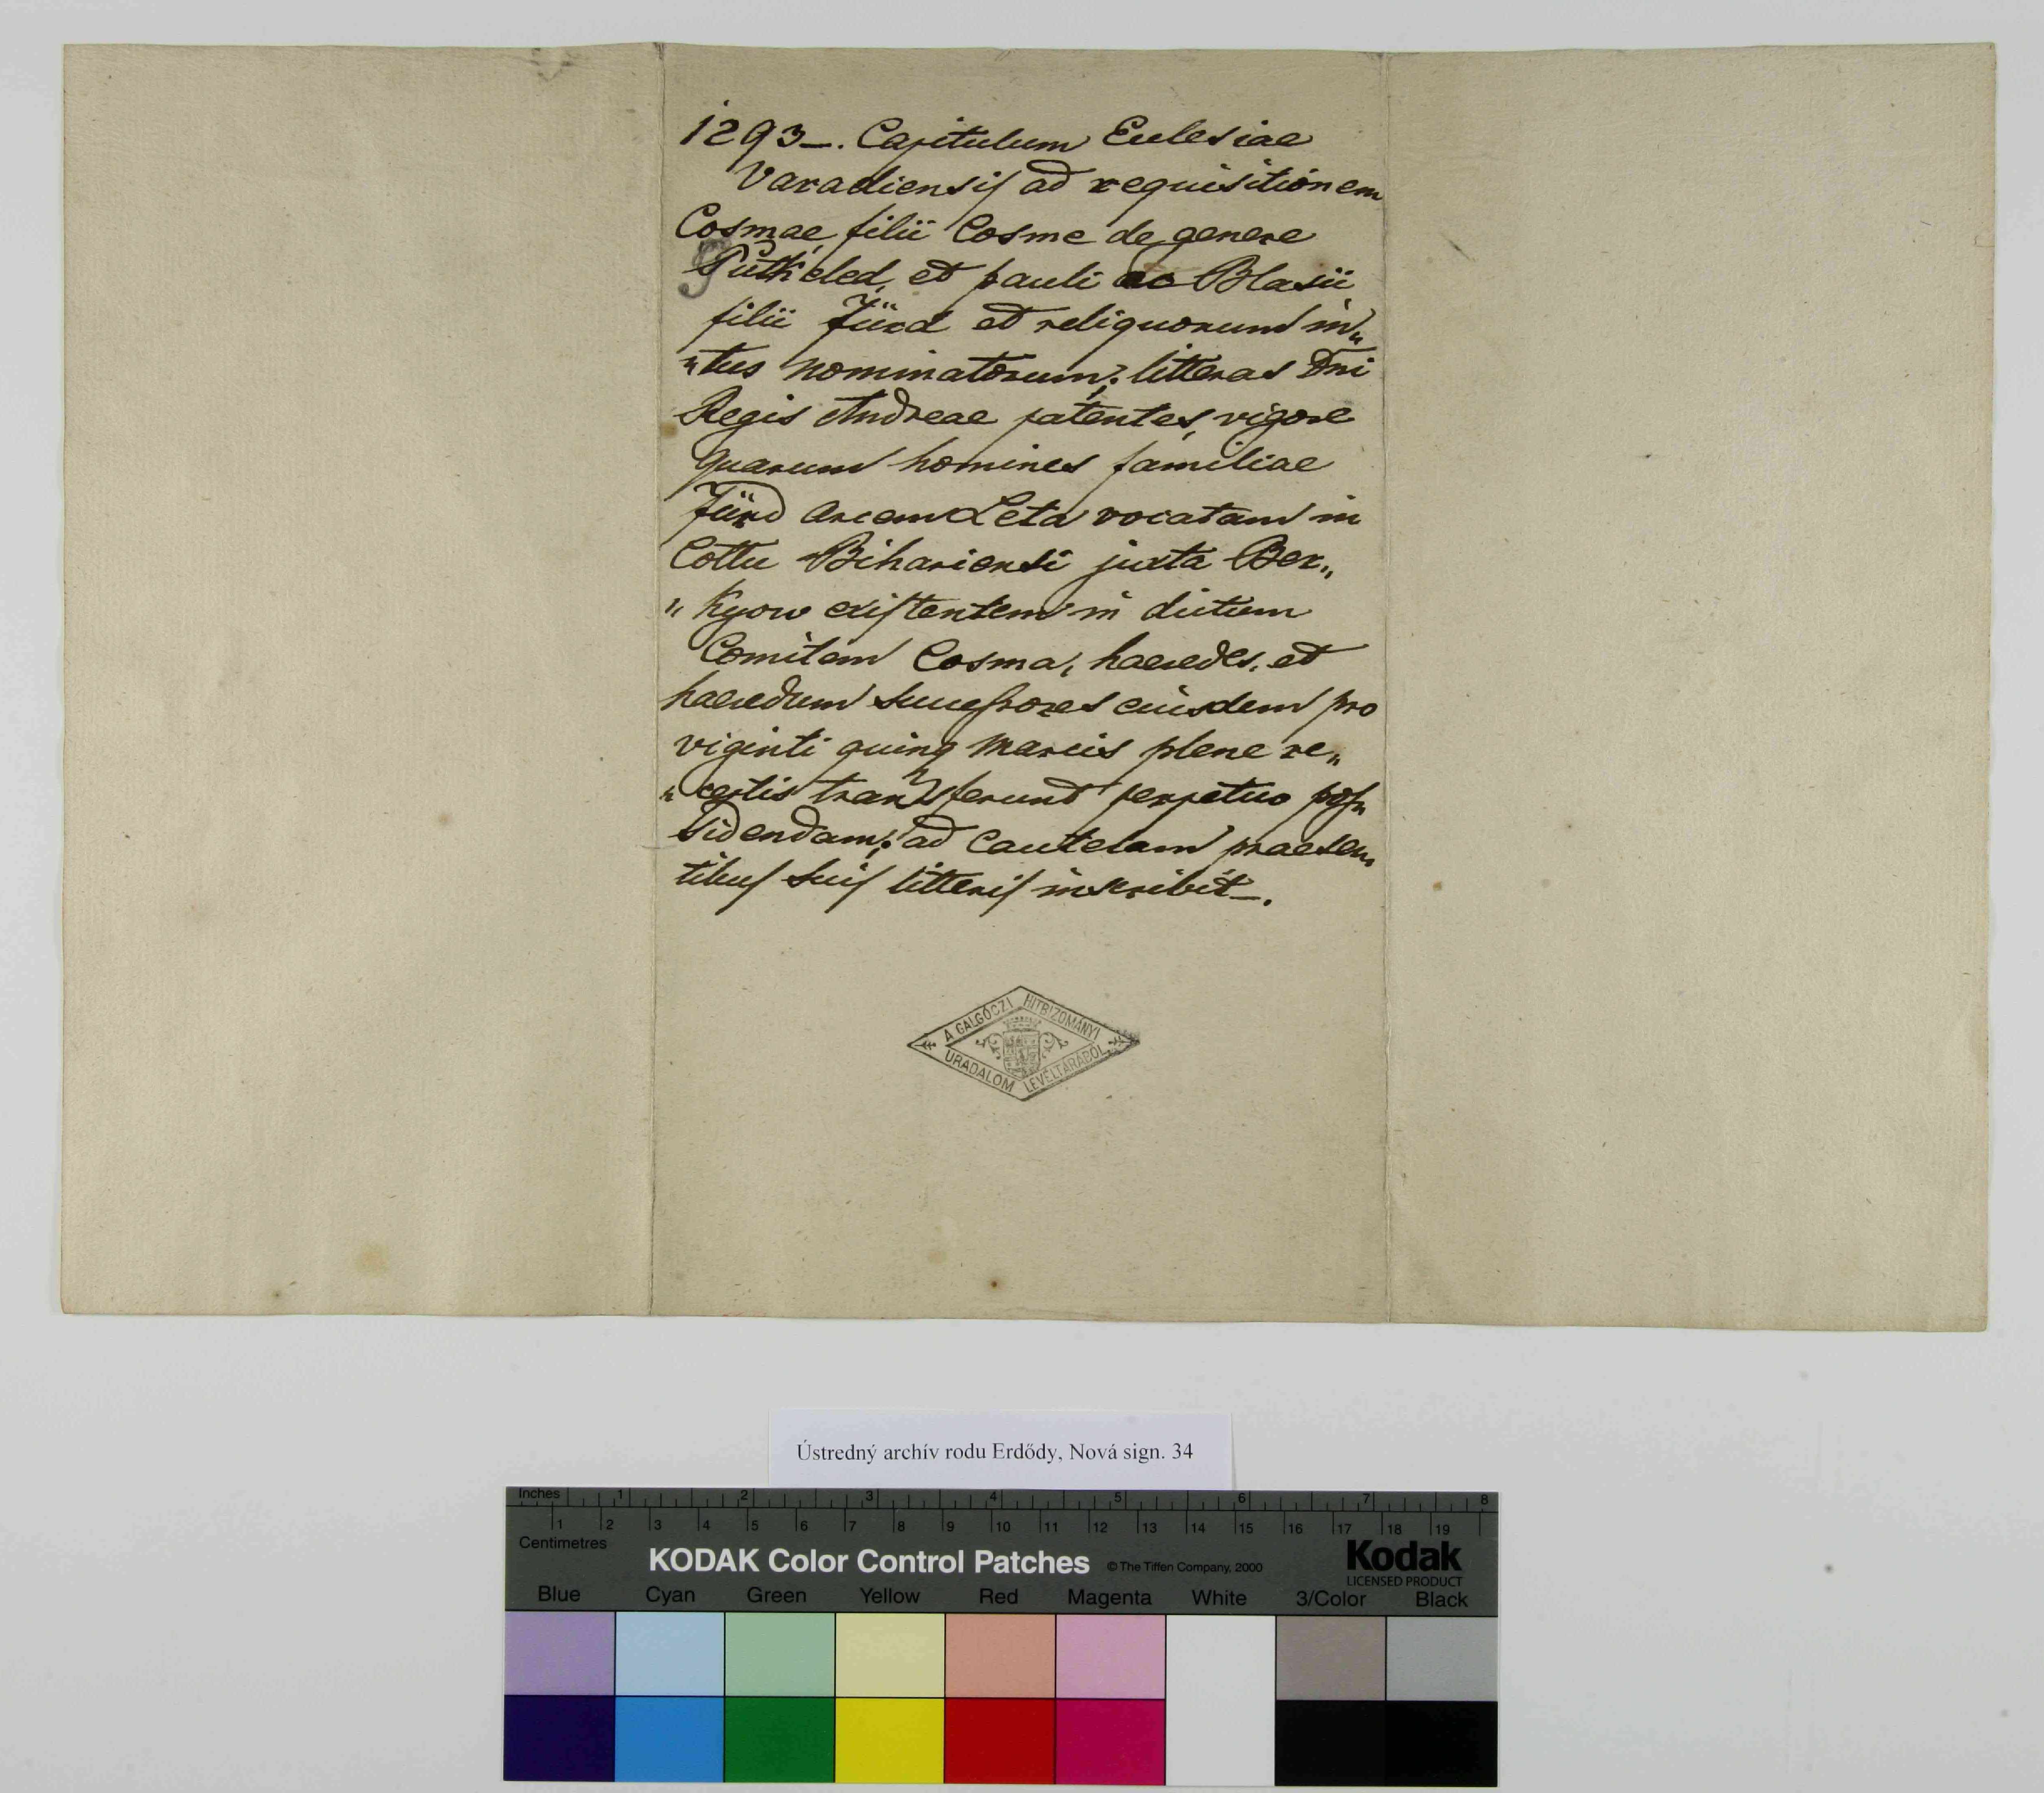 1293_. Capitulum Ecclesiae
Varadiensis ad requisitionem
Cosmae filii Cosme de genere
Gutkeled, et pauli ac Blasii
filii Jürd et reliquorum in„
„tus nominatorum; litteras Dni
Regis Andreae patentes, vigore
quarum homines familiae
Jürd arcem Leta vocatam in
Cottu Bihariensi juxta Ber„
„Kyow existentem in dictum
Comitem Cosma, haeredes, et
haeredum successores eiusdem pro
viginti quinq marcis plene re„
„ceptis transferunt perpetuo pos„
sidendam; ad cautelam praesen„
tibus suis litteris inscribit_.
A GALGÓCZI HITBIZOMÁNYI
URADALOM LEVÉLTÁRÁBÓL
Ústredný archív rodu Erdődy, Nová sign. 34
Inches 1 2 3 4 5 6 7 8
1 2 3 4 5 6 7 8 9 10 11 12 13 14 15 16 17 18 19
Centimetres
KODAK Color Control Patches © The Tiffen Company, 2000 Kodak
LICENSED PRODUCT
Blue Cyan Green Yellow Red Magenta White 3/Color Black